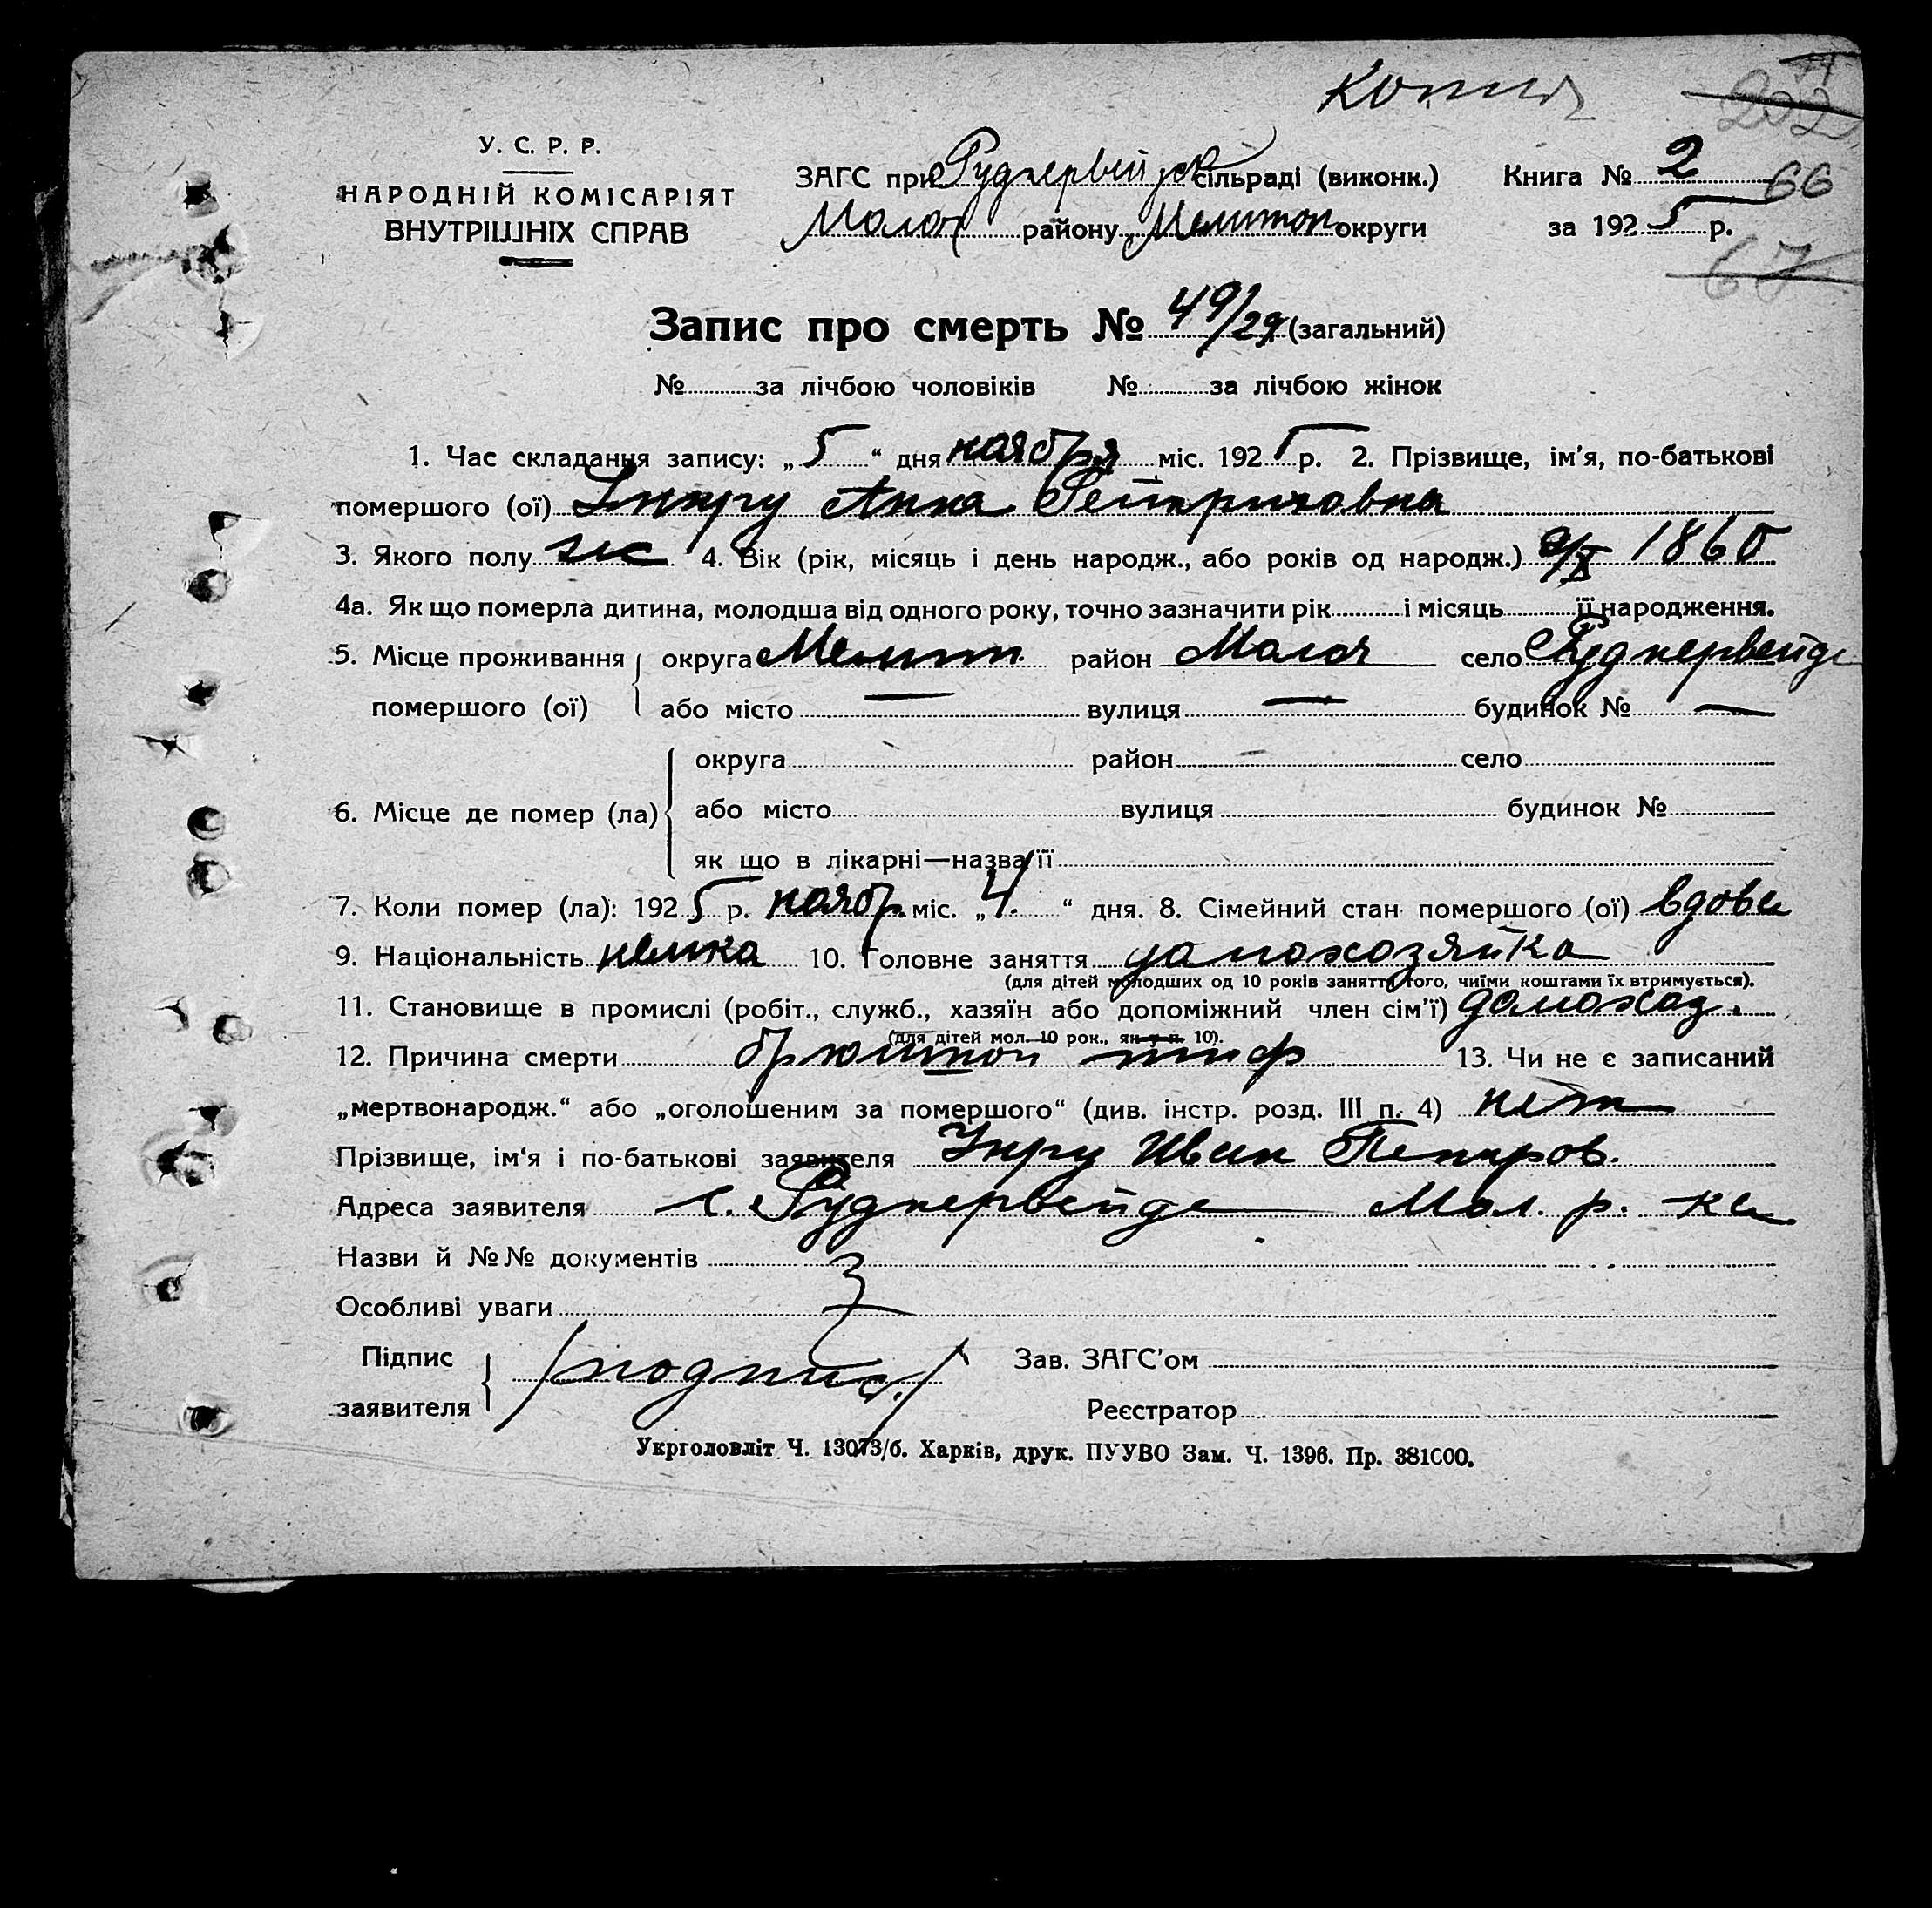 Копия
202
У. С. Р. Р.
НАРОДНІЙ КОМІСАРІЯТ
ВНУТРІШНІХ СПРАВ
ЗАГС при Руднервейдск сільраді (виконк.) Книга № 2
66
Молоч району Мелитоп округи за 1925 р.
67
Запис про смерть № 49/29 (загальний)
№ за лічбою чоловіків № за лічбою жінок
1. Час складання запису: „5“ дня ноября міс. 1925 р. 2. Прізвище, ім'я, по-батькові
помершого (ої) Унру Анна Гейнриховна
3. Якого полу ж 4. Вік (рік, місяць і день народж., або років од народж.) 1860
4а. Як що померла дитина, молодша від одного року, точно зазначити рік і місяць її народження.
5. Місце проживання округа Мелит район Молоч село Руднервейде
помершого (ої) або місто — вулиця — будинок № —
округа район — село
6. Місце де помер (ла) або місто вулиця будинок №
як що в лікарні—назва її
7. Коли помер (ла): 1925 р. ноябр. міс. „4.“ дня. 8. Сімейний стан помершого (ої) вдова
9. Національність немка 10. Головне заняття домохозяйка
(для дітей молодших од 10 років заняття того, чиїми коштами їх втримується).
11. Становище в промислі (робіт., служб., хазяїн або допоміжний член сім'ї) домохоз.
(для дітей мол. 10 рок., як у п. 10).
12. Причина смерти брюшной тиф 13. Чи не є записаний
„мертвонародж.“ або „оголошеним за помершого“ (див. інстр. розд. III п. 4) нет
Прізвище, ім'я і по-батькові заявителя Унру Иван Петров.
Адреса заявителя с. Руднервейде Мол. р-ка
Назви й №№ документів
Особливі уваги
Підпис /подпис/ Зав. ЗАГС'ом
заявителя Реєстратор
Укрголовліт Ч. 13073/б. Харків, друк. ПУУВО Зам. Ч. 1396. Пр. 381000.